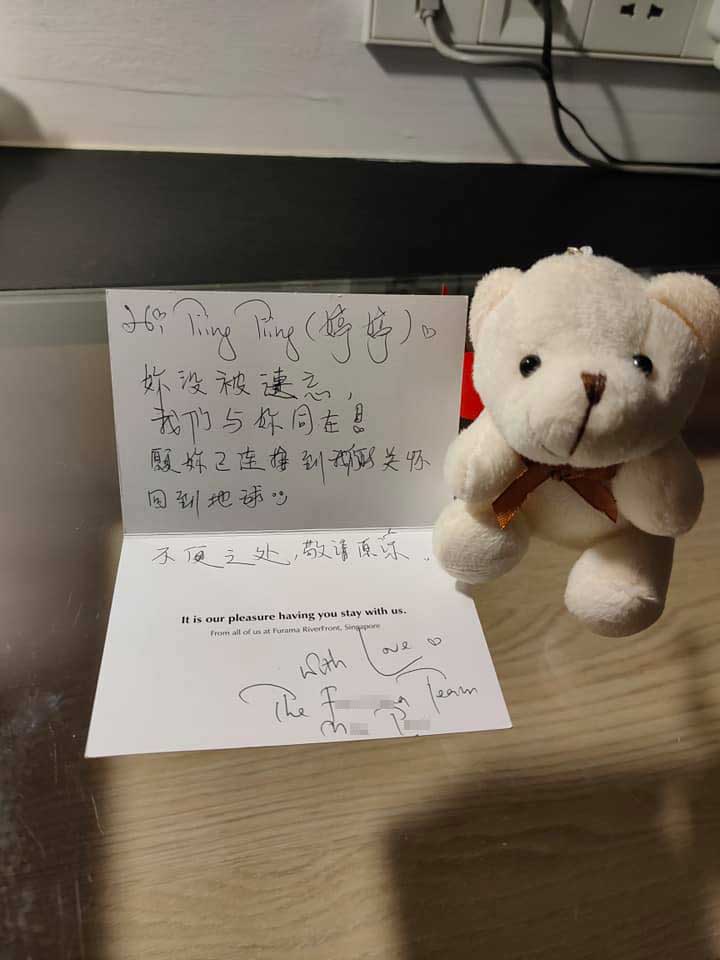 Hi Tiing Tiing (婷婷)
妳没被遗忘，
我们与妳同在!
愿妳已连接到我们的关怀
回到地球
不便之处，敬请原谅.
It is our pleasure having you stay with us.
From all of us at Furama RiverFront, Singapore
With Love
The Team